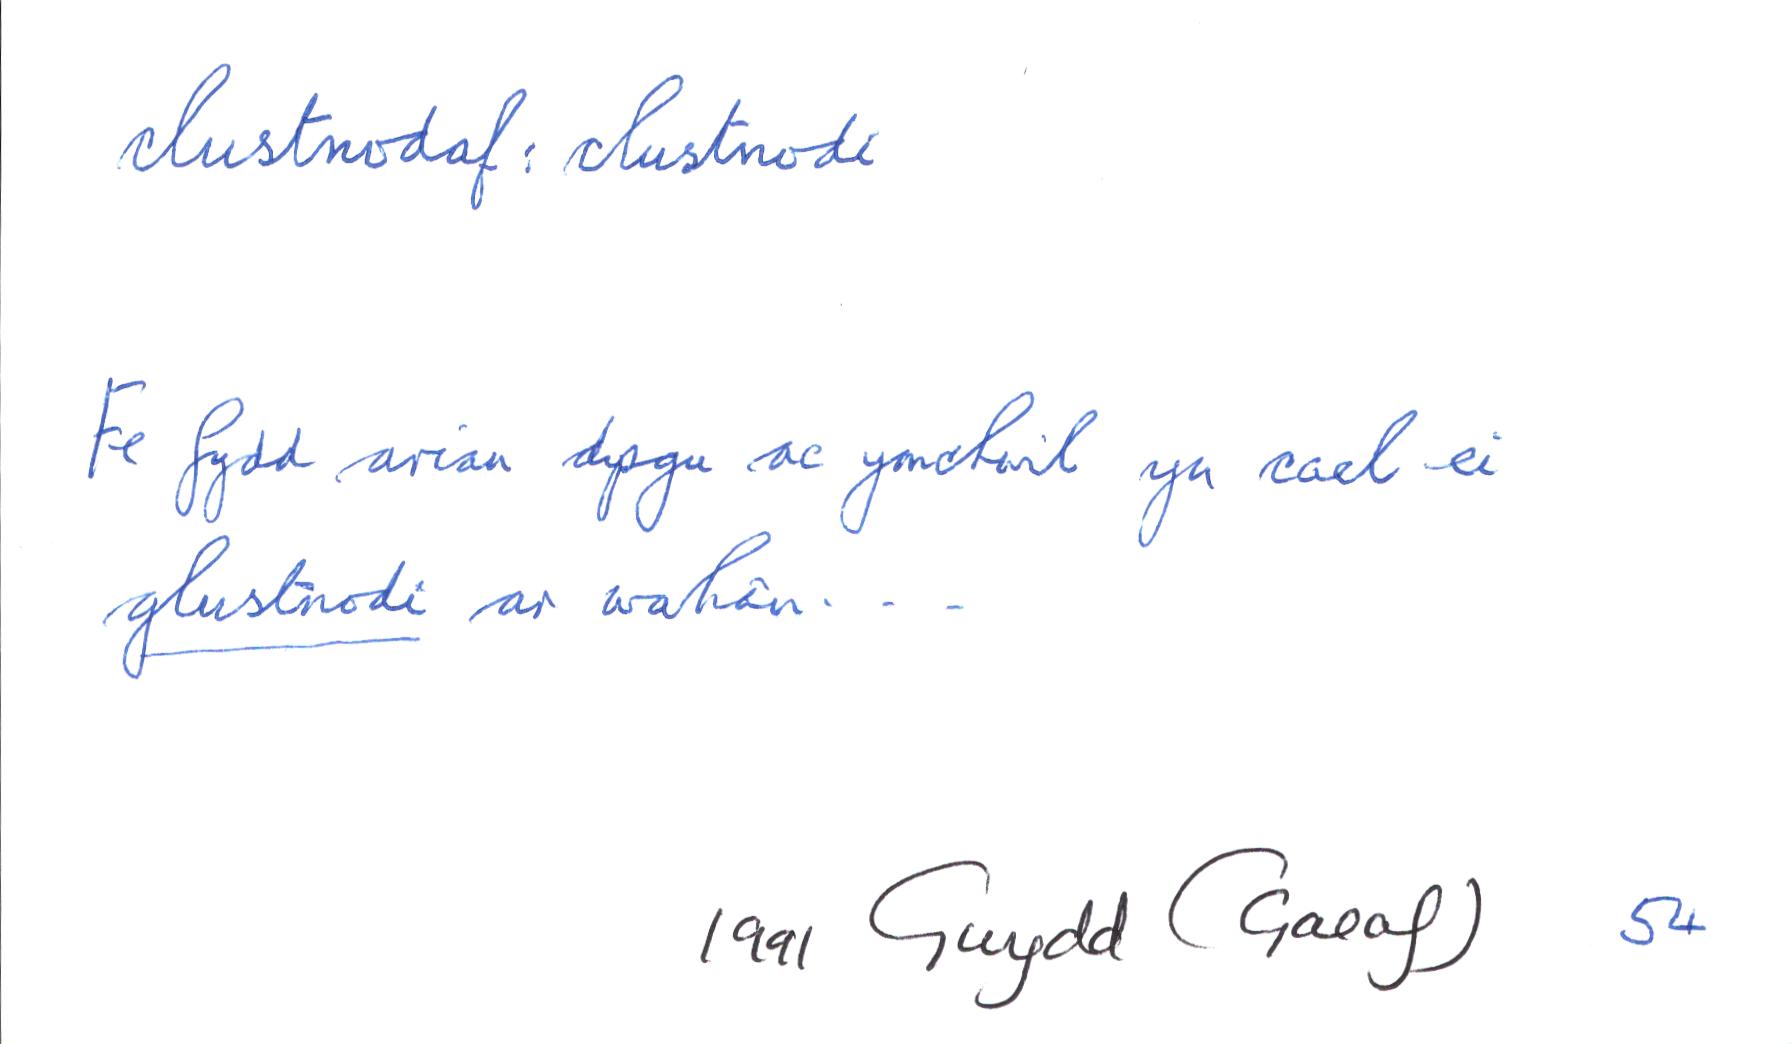 clustnodaf: clustnodi
Fe fydd arian dysgu ac ymchwil yn cael ei
glustnodi ar wahân. . .
1991 Gwydd (Gaeaf) 54